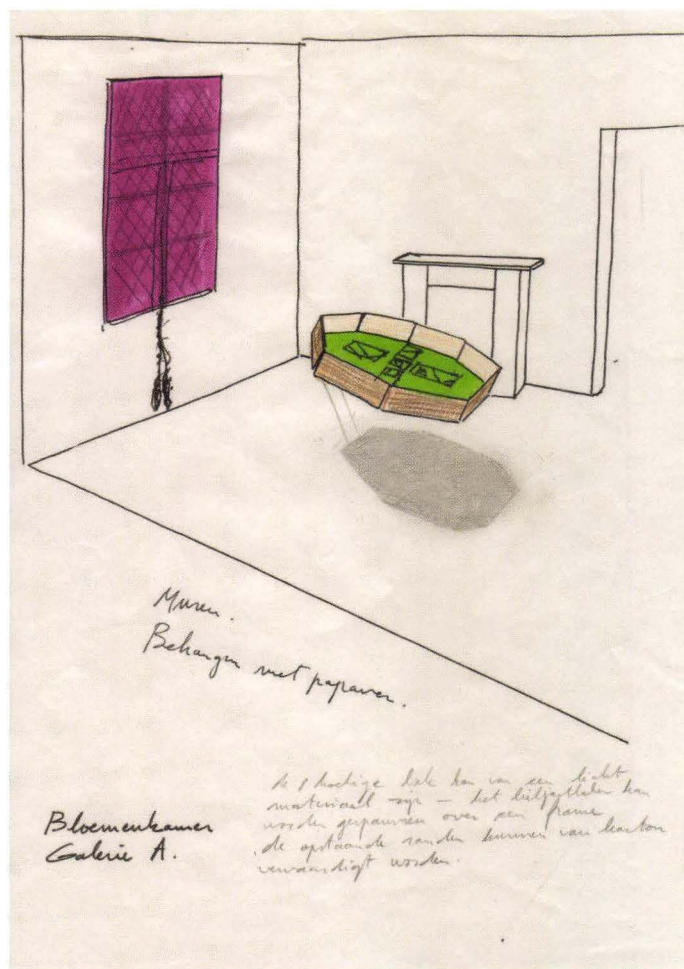 Muren.
Behangen met papaver.
Bloemenkamer
Galerie A.
de 8 hoekige bak kan van een licht
materiaal zijn – het biljartlaken kan
worden gespannen over een frame
de opstaande randen kunnen van karton
vervaardigt worden.